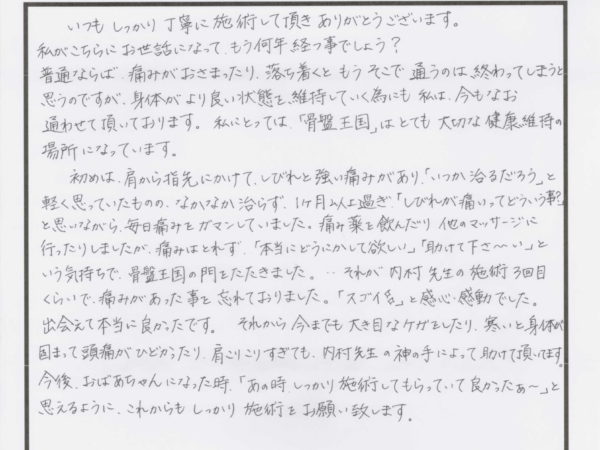 いつも しっかり 丁寧に 施術して頂き ありがとうございます。
私がこちらに お世話になって、もう何年 経つ事でしょう？
普通ならば、痛みがおさまったり、落ち着くと もう そこで 通うのは 終わってしまうと
思うのですが、身体が より良い状態を 維持していく為にも 私は、今もなお
通わせて頂いております。私にとっては、「骨盤王国」はとても 大切な 健康維持の
場所になっています。
初めは、肩から指先にかけて、しびれと強い痛みがあり、「いつか治るだろう」と
軽く思っていたものの、なかなか治らず、1ヶ月以上過ぎ、「しびれが痛いってどういう事？」
と思いながら、毎日痛みを ガマンしていました。痛み薬を飲んだり 他のマッサージに
行ったりしましたが、痛みはとれず、「本当にどうにかして欲しい」「助けて下さ〜い」と
いう気持ちで、骨盤王国の門をたたきました。‥それが 内村先生の施術3回目
くらいで、痛みがあった事を 忘れておりました。「スゴイ」と感心・感動でした。
出会えて本当に良かったです。 それから 今までも 大き目なケガをしたり、寒いと身体が
固まって頭痛がひどかったり、肩こりこりすぎても、内村先生の神の手によって助けて頂いてます。
今後、おばあちゃんになった時、「あの時、しっかり施術してもらっていて良かったぁ〜」と
思えるように、これからも しっかり 施術を お願い致します。